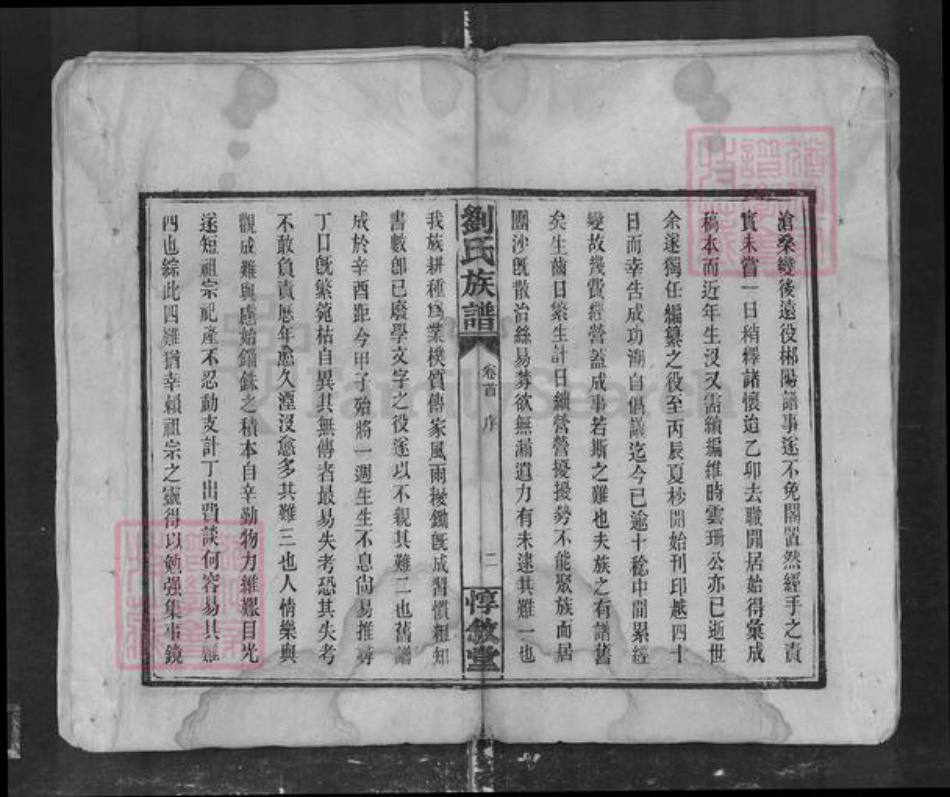 滄桑變後遠役郴陽譜事遂不免閣置然經手之責
實未嘗一日稍釋諸懷迨乙卯去職閒居始得彙成
稿本而近年生沒又需續編維時雲珊公亦已逝世
余遂獨任編纂之役至丙辰夏杪開始刊印越四十
日而幸告成功溯自倡議迄今已逾十稔中間累經
變故幾費經營蓋成事若斯之難也夫族之有譜舊
矣生齒日繁生計日繼營營擾擾勢不能聚族而居
團沙旣散治絲易棼欲無漏遺力有未逮其難一也
劉氏族譜
卷首 序
二
惇敘堂
我族耕種爲業樸質傳家風雨犂鋤旣成習慣粗知
書數卽已廢學文字之役遂以不親其難二也舊譜
成於辛酉距今甲子殆將一週生生不息尙易推尋
丁口旣繁菀枯自異其無傳者最易失考恐其失考
不敢負責歷年愈久湮沒愈多其難三也人情樂與
觀成難與慮始錙銖之積本自辛勤物力維艱目光
遂短祖宗祀產不忍動支計丁出費談何容易其難
四也綜此四難猶幸賴祖宗之靈得以勉强集事鏡